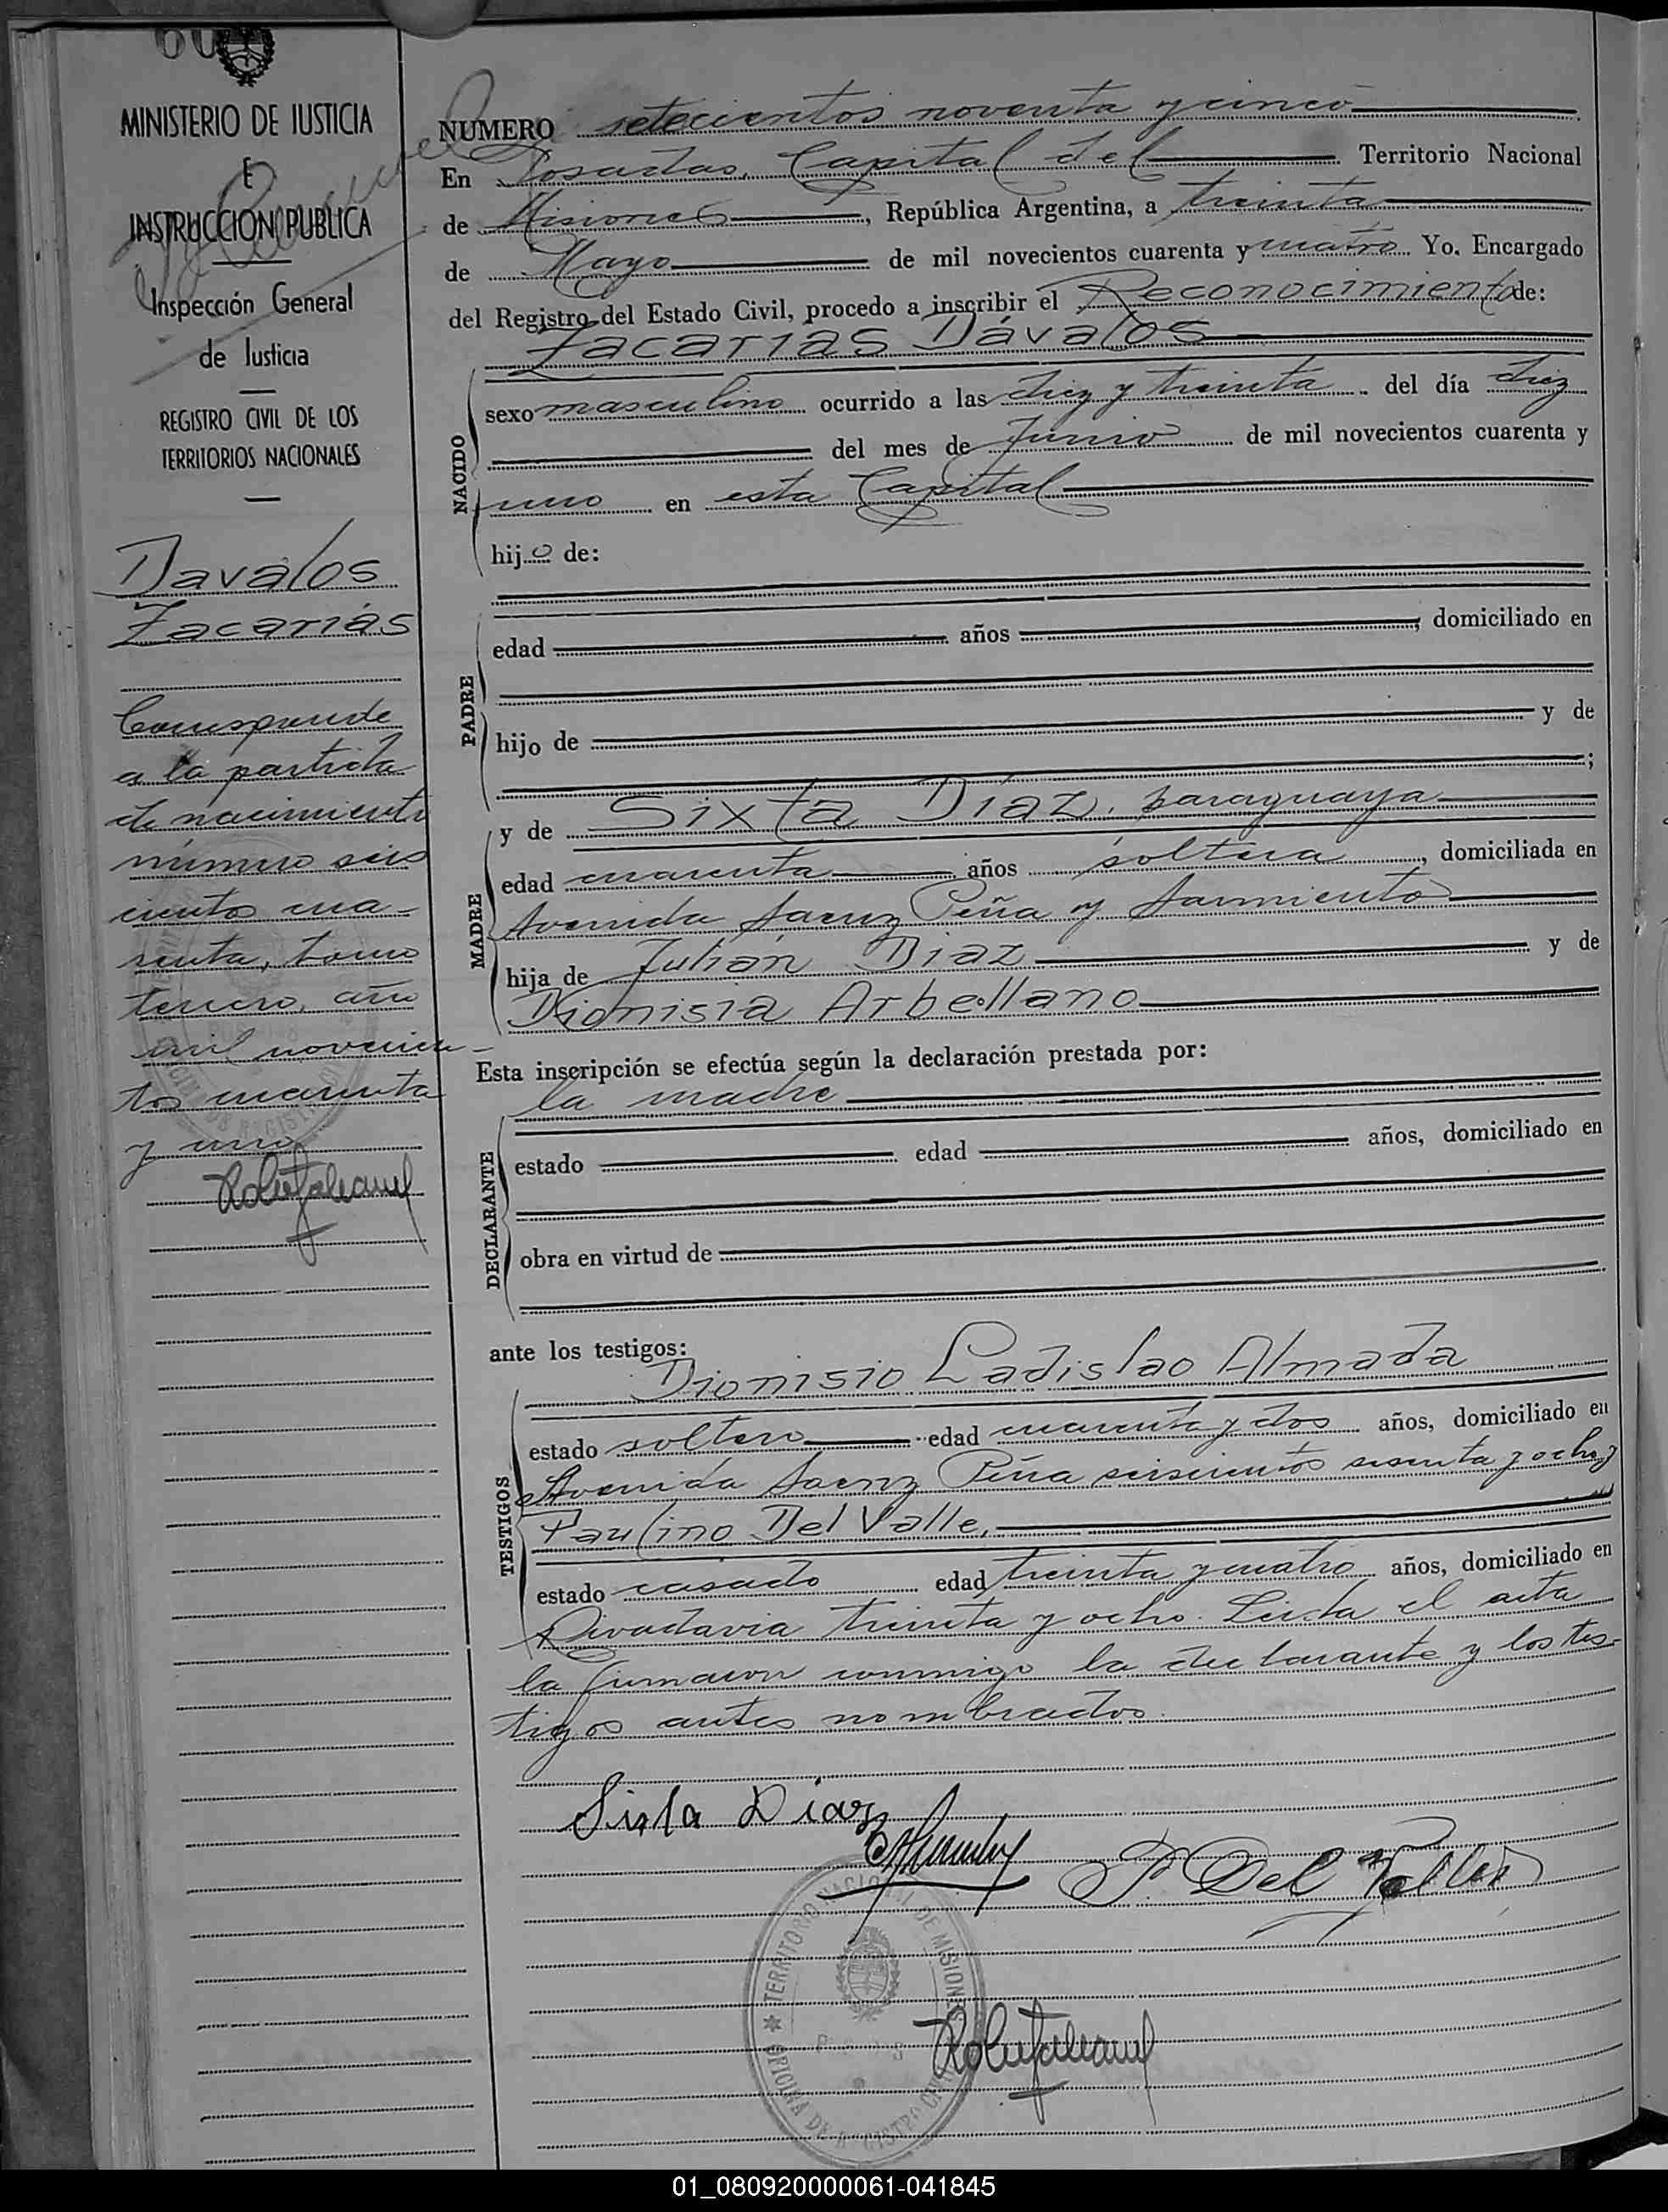 60
MINISTERIO DE JUSTICIA
E
INSTRUCCION PUBLICA
Inspección General
de Justicia
REGISTRO CIVIL DE LOS
TERRITORIOS NACIONALES
Davalos
Zacarias
Corresponde
a la partida
de nacimiento
número seis
cientos cua-
renta, tomo
tercero, año
mil novecien-
tos cuarenta
y uno
NUMERO setecientos noventa y cinco
En Posadas, Capital del Territorio Nacional
de Misiones, República Argentina, a treinta
de Mayo de mil novecientos cuarenta y cuatro Yo. Encargado
del Registro del Estado Civil, procedo a inscribir el Reconocimiento de:
Zacarias Dávalos
NACIDO
sexo masculino ocurrido a las diez y treinta del día diez
del mes de Junio de mil novecientos cuarenta y
uno en esta Capital
hijo de:
PADRE
edad años , domiciliado en
hijo de y de
;
MADRE
y de Sixta Díaz, paraguaya
edad cuarenta años soltera, domiciliada en
Avenida Saenz Peña y Sarmiento
hija de Julián Diaz y de
Dionisia Arbellano
Esta inscripción se efectúa según la declaración prestada por:
la madre
DECLARANTE
estado edad años, domiciliado en
obra en virtud de
ante los testigos:
Dionisio Ladislao Almada
TESTIGOS
estado soltero edad cuarenta y dos años, domiciliado en
Avenida Saenz Peña seiscientos sesenta y ocho y
Paulino Del Valle,
estado casado edad treinta y cuatro años, domiciliado en
Rivadavia treinta y ocho. Leida el acta
la firmaron conmigo la declarante y los tes-
tigos antes nombrados.
Sixta Diaz
P Del Valle
TERRITORIO NACIONAL DE MISIONES
OFICINA DE REGISTRO CIVIL
01_080920000061-041845